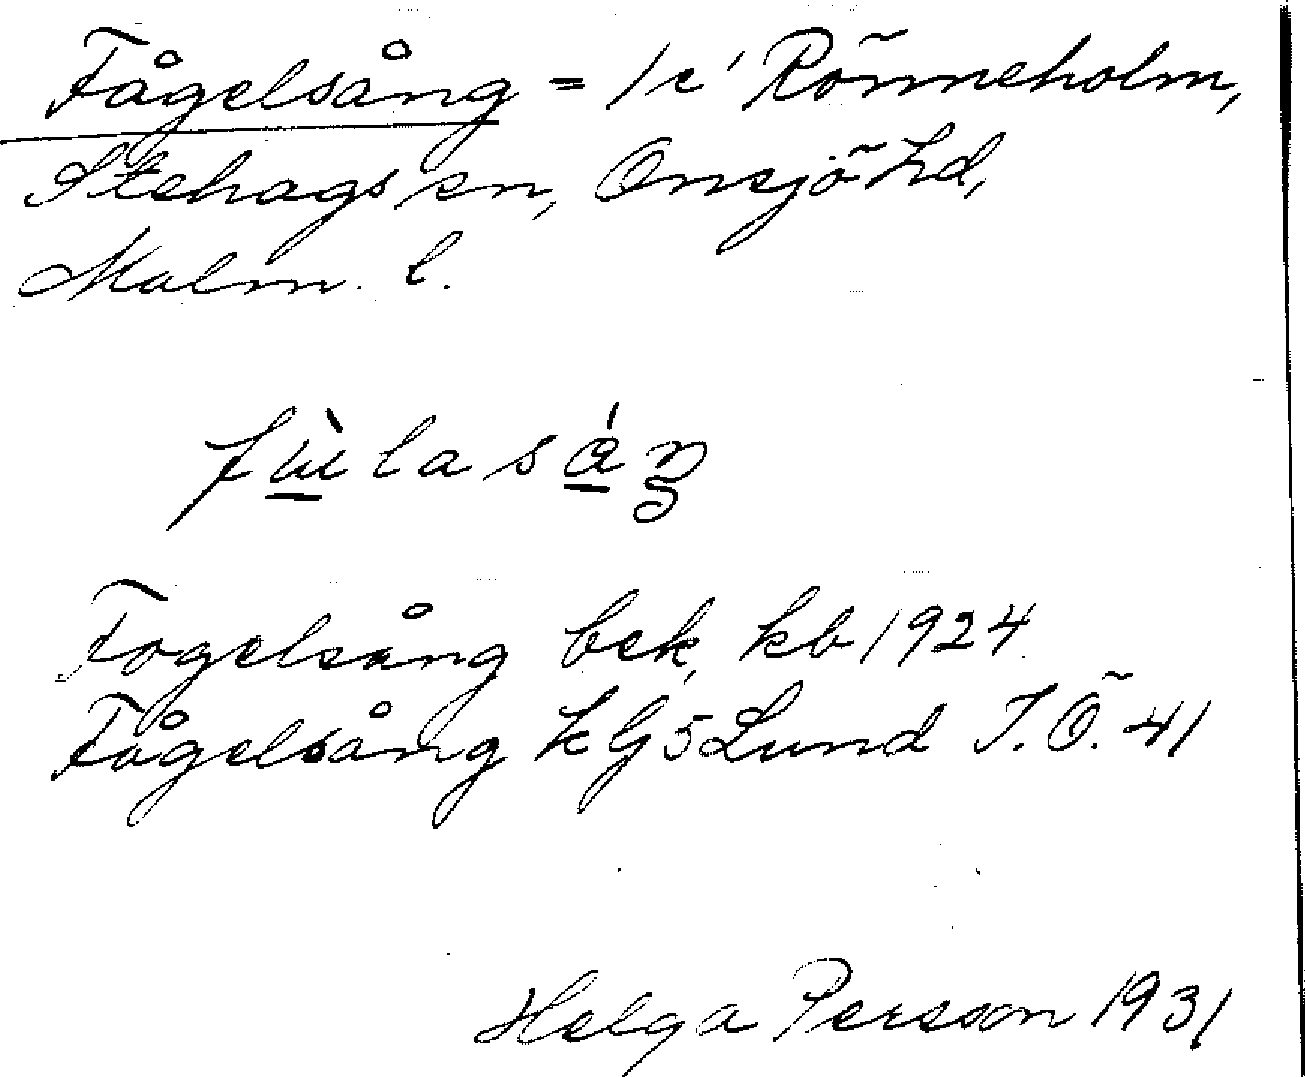 Fågelsång = 1c' Rönneholm,
Stehags sn, Onsjö hd,
Malm. l.
Fogelsång bek, kb 1924
Fågelsång k G5 Lund J.Ö. 41
Helga Persson 1931